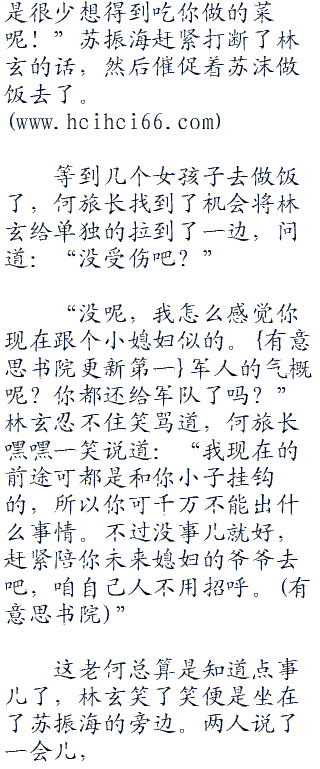 是很少想得到吃你做的菜
呢！”苏振海赶紧打断了林
玄的话，然后催促着苏沫做
饭去了。
(www.hcihci66.com)
等到几个女孩子去做饭
了，何旅长找到了机会将林
玄给单独的拉到了一边，问
道：“没受伤吧？”
“没呢，我怎么感觉你
现在跟个小媳妇似的。{有意
思书院更新第一}军人的气概
呢？你都还给军队了吗？”
林玄忍不住笑骂道，何旅长
嘿嘿一笑说道：“我现在的
前途可都是和你小子挂钩
的，所以你可千万不能出什
么事情。不过没事儿就好，
赶紧陪你未来媳妇的爷爷去
吧，咱自己人不用招呼。(有
意思书院)”
这老何总算是知道点事
儿了，林玄笑了笑便是坐在
了苏振海的旁边。两人说了
一会儿，